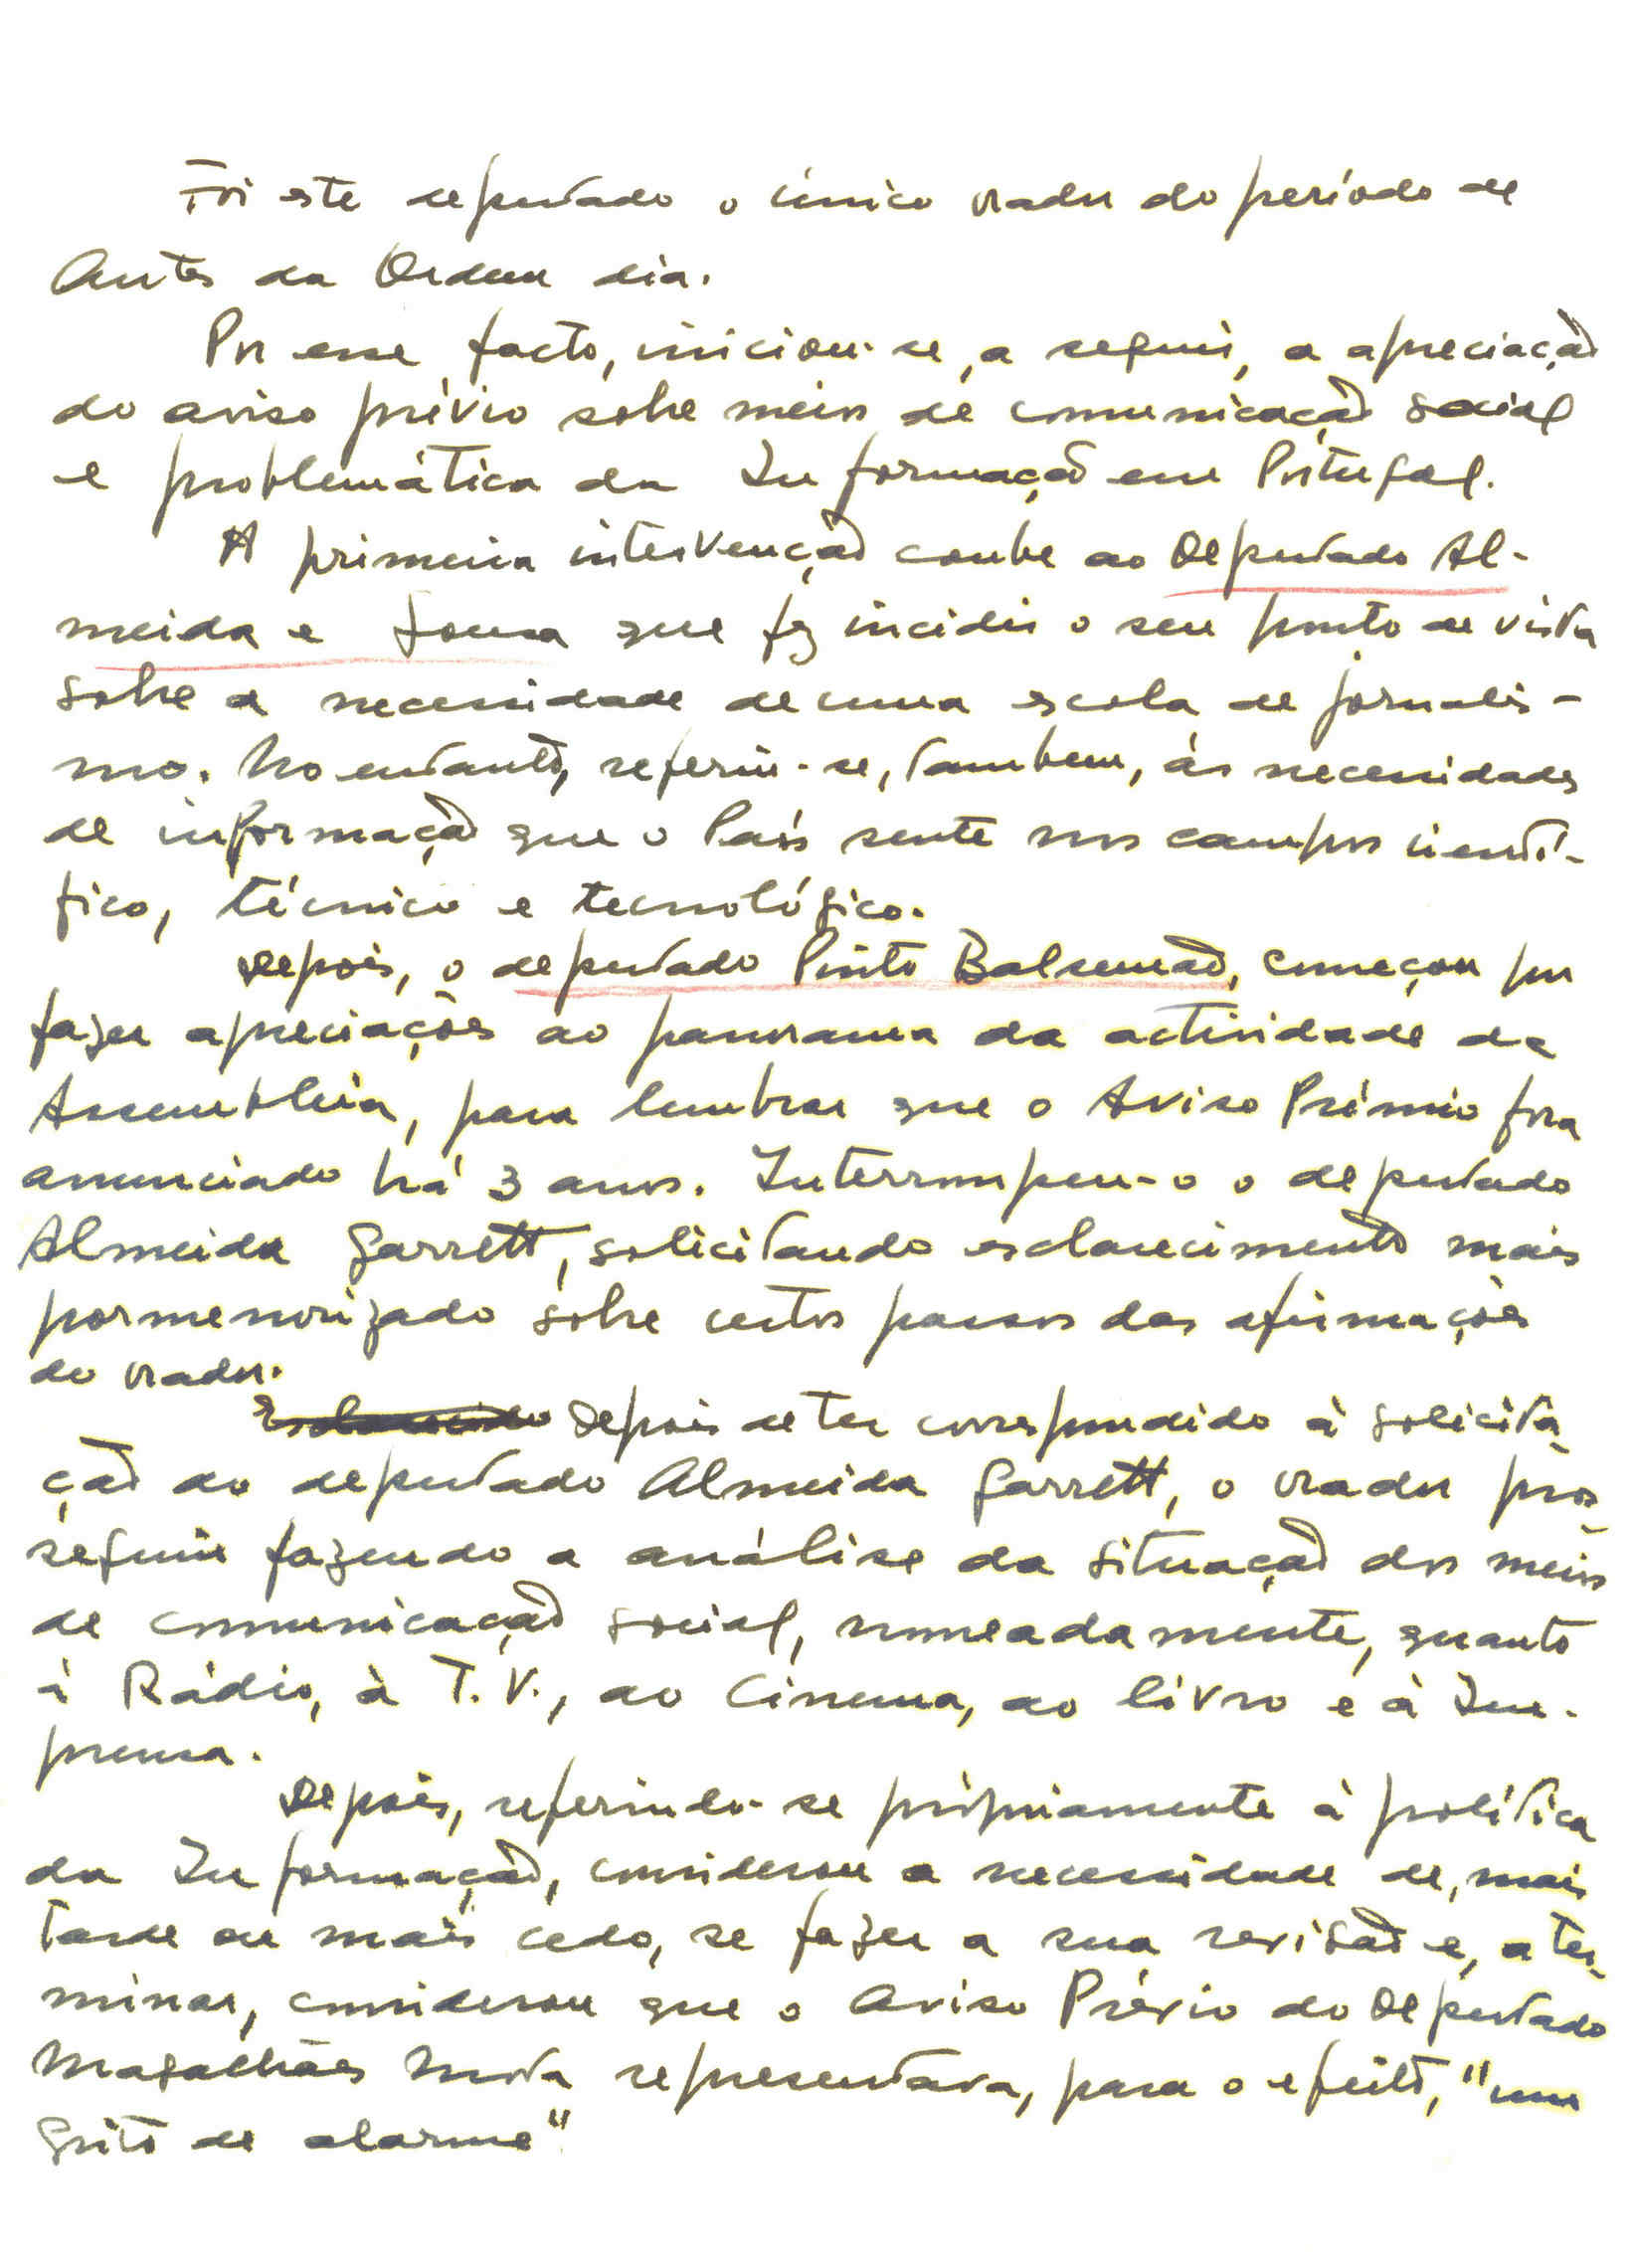 Foi este deputado o único orador do período de
Antes da Ordem dia.
Por esse facto, iniciou-se, a seguir, a apreciação
do aviso prévio sobre meios de comunicação social
e problemática da Informação em Portugal.
A primeira intervenção coube ao Deputado Al-
meida e Sousa que fez incidir o seu ponto de vista
sobre a necessidade de uma escola de jornalis-
mo. No entanto, referiu-se, tambem, às necessidades
de informação que o País sente nos campos cientí-
fico, técnico e tecnológico.
Depois, o deputado Pinto Balsemão, começou por
fazer apreciações ao panorama da actividade da
Assembleia, para lembrar que o Aviso Prémio fora
anunciado há 3 anos. Interrompeu-o o deputado
Almeida Garrett, solicitando esclarecimento mais
pormenorizado sobre certos passos das afirmações
do orador.
Depois de ter correspondido à solicita-
ção do deputado Almeida Garrett, o orador pros-
seguiu fazendo a análise da situação dos meios
de comunicação social, nomeadamente, quanto
à Rádio, à T.V., ao Cinema, ao livro e à Im-
prensa.
Depois, referindo-se pròpriamente à política
da Informação, considerou a necessidade de, mais
tarde ou mais cedo, se fazer a sua revisão e, a ter-
minar, considerou que o Aviso Prévio do Deputado
Magalhães Mota representava, para o efeito, "um
grito de alarme"